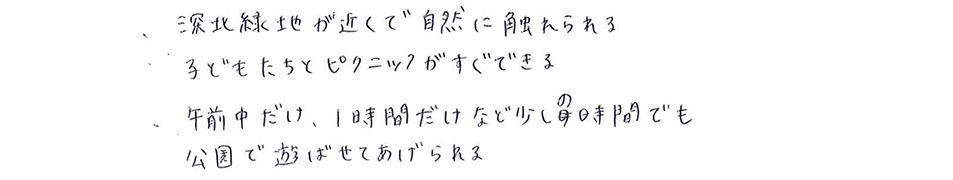 、深北緑地が近くて自然に触れられる
、子どもたちとピクニックがすぐできる
、午前中だけ、1時間だけなど少しの時間でも
公園で遊ばせてあげられる